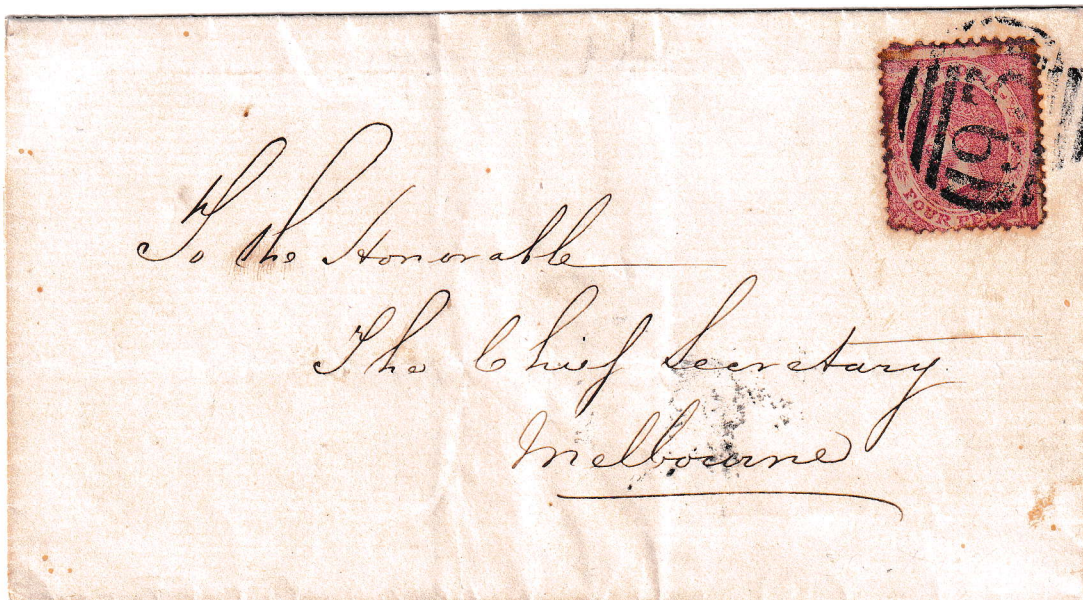 FOUR PE
To the Honorable
The Chief Secretary
Melbourne